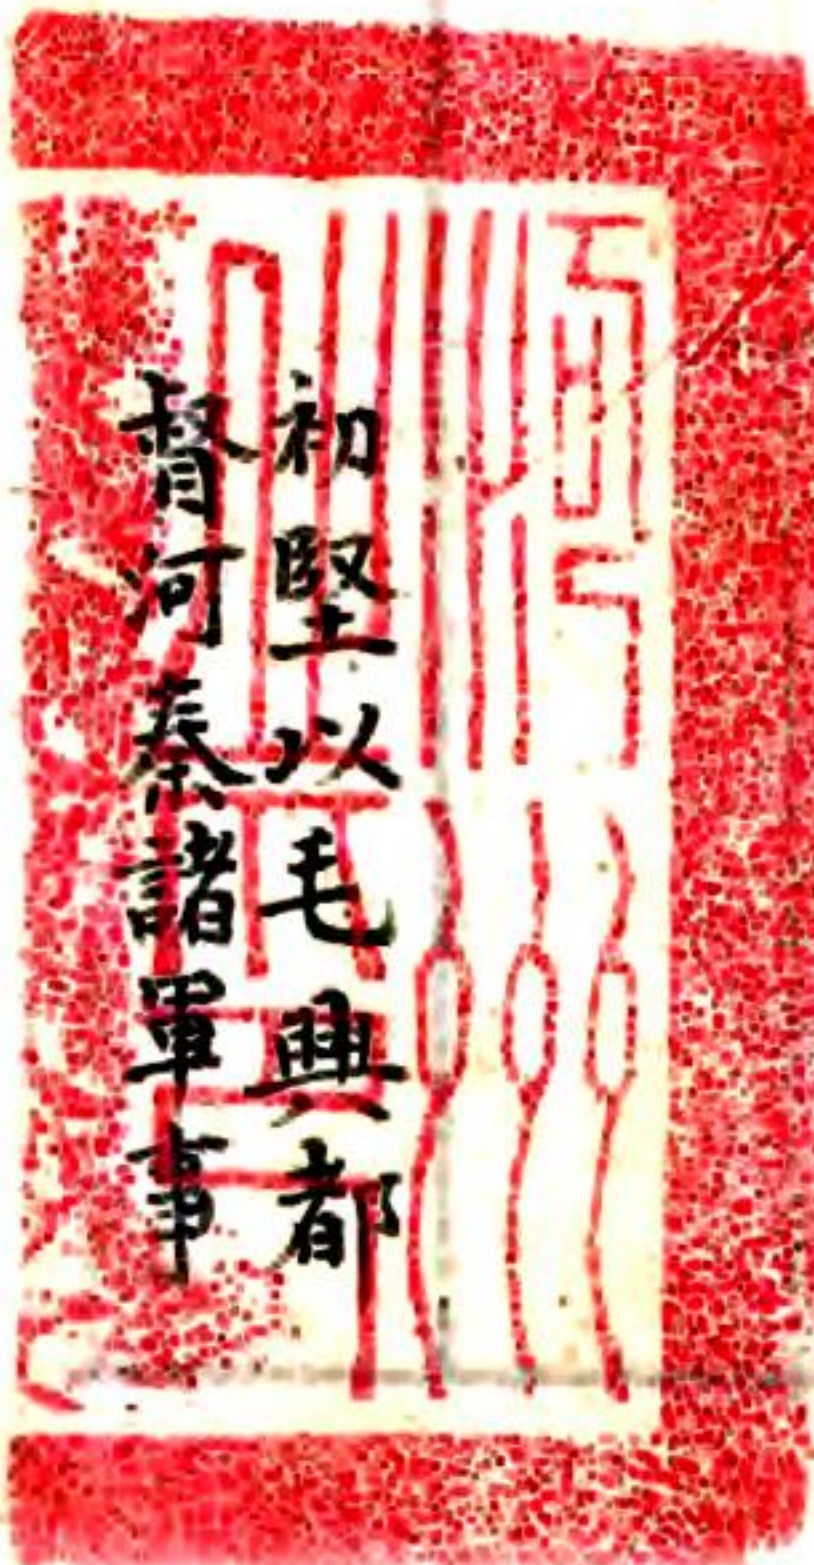 初堅以毛興都
督河秦諸軍事